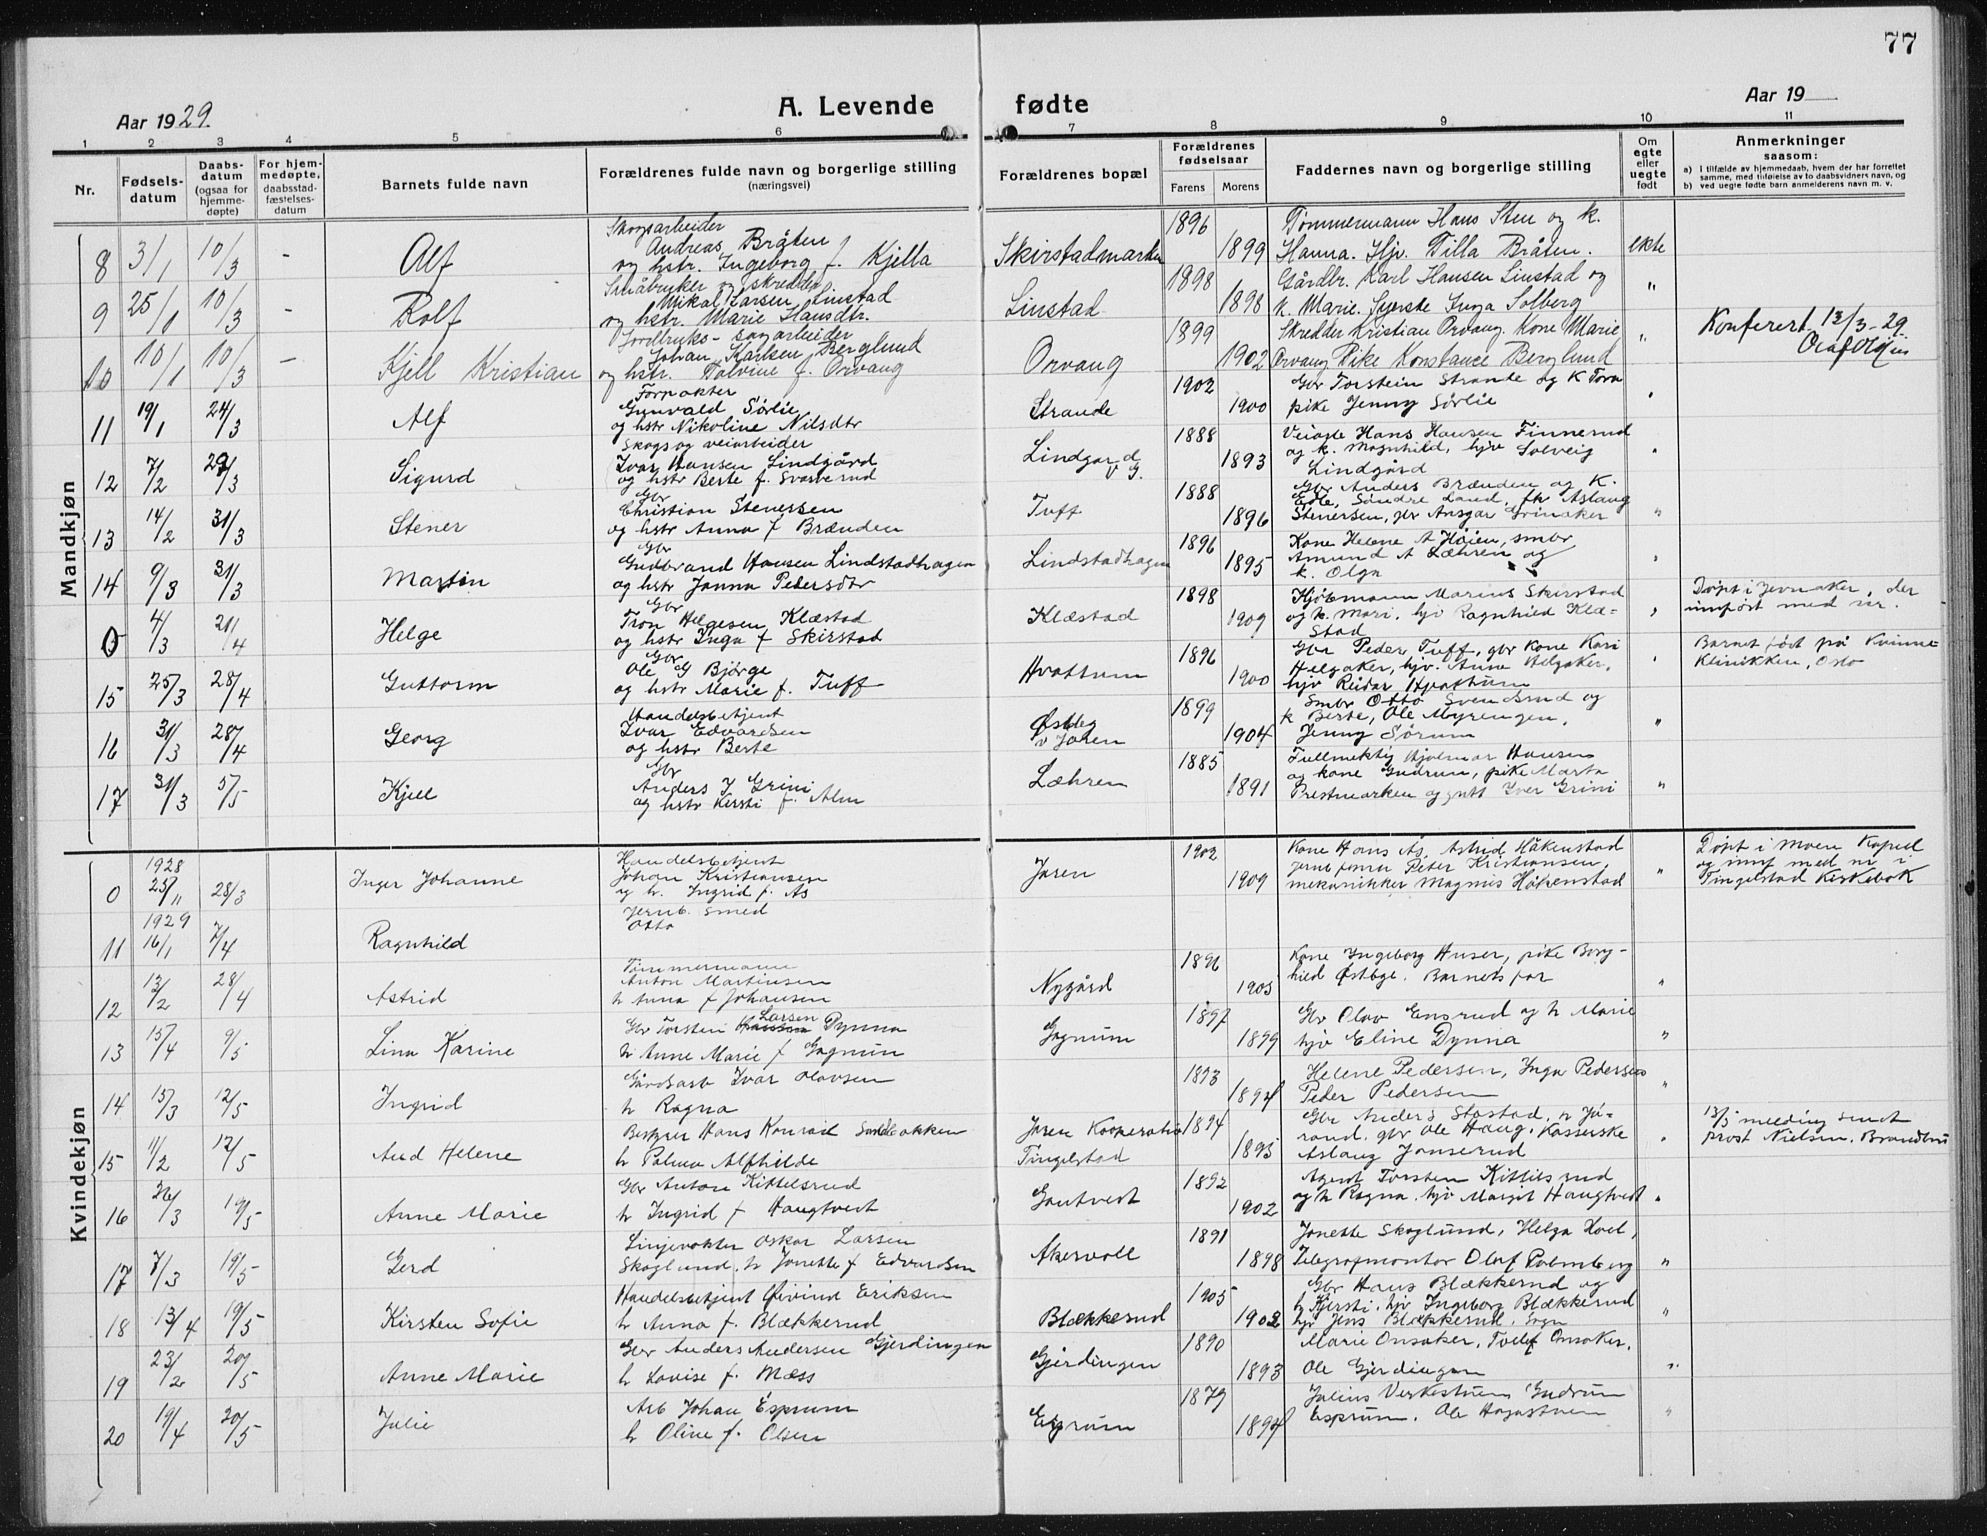 77
Aar 1929.
A. Levende fødte
Aar 19
1 2 3 4 5 6 7 8 9 10 11
Nr.
Fødsels-datum
Daabs-datum (ogsaa for hjemme-døpte)
For hjem-medøpte, daabsstad-fæstelses-datum
Barnets fulde navn
Forældrenes fulde navn og borgerlige stilling (næringsvei)
Forældrenes bopæl
Forældrenes fødselsaar
Farens Morens
Faddernes navn og borgerlige stilling
Om egte eller uegte født
Anmerkninger saasom:
a) I tilfælde av hjemmedaab, hvem der har forrettet samme, med tilføielse av to daabsvidners navn, og
b) ved uegte fødte barn anmelderens navn m. v.
Mandkjøn
Skogsarbeider 1896 Tømmermann Hans Sten og k.
8 3/1 10/3 - Alf Andreas Bråten og hstr. Ingeborg f. Kjella Skirstadmarken 1899 Hanna. Hjv. Tilla Bråten. ekte
Småbruker og skredder 1898 Gårdbr. Karl Hansen Linstad og
9 25/1 10/3 - Rolf Mikal Larsen Linstad og hstr. Marie Hansdtr. Linstad 1898 k. Marie. Syerske Inga Solberg "
Jordbruks- sagarbeider 1899 Skredder Kristian Orvang. Kone Marie " Konferert 13/3-29.
10 10/1 10/3 - Kjell Kristian Johan Karlsen Berglund og hstr. Tolvine f. Orvang Orvang 1902 Orvang Pike Konstance Berglund
Gunvald Sørlie 1902 Gbr Torstein Strande og K Tora
11 19/1 24/3 Alf og hstr Nikoline Nilsdtr Strande 1900 pike Jenny Sørlie "
Skogs og veiarbeider 1888 Hans Hansen Finnerud
12 7/2 29/3 Sigurd Ivar Hansen Lindgård og hstr Berte f. Svarverud Lindgard v G. 1893 og k. Magnhild, hjv Solveig Lindgård "
Gbr 1888 Gbr Anders Brænden og K.
13 14/2 31/3 Stener Christian Stenersen og hstr Anna f Brænden Tuff 1896 Edle, Søndre Land, fk Aslaug Stenersen, gbr Ansgar Grinaker "
Gbr 1896 Kone Helene A Høien, smbr
14 9/3 31/3 Martin Gudbrand Hansen Lindstadhagen og hstr Janna Pedersdtr Lindstadhagen 1895 Amund A Læhren og k. Olga "
Gbr 1898 Kjøbmann Marius Skirstad Døpt i Jevnaker, der
0 4/3 21/4 Helge Tron Helgesen Klæstad og hstr Inga f Skirstad Klæstad 1909 og k. Mari, hjv Ragnhild Klæ-stad " innført med nr.
Gbr 1896 Gbr Peder Tuff, gbr kone Kari Barnet født på Kvinne-
15 25/3 28/4 Guttorm Ole G Bjørge og hstr Marie f. Tuff Hvattum 1900 Helgaker, hjv. Anna Helgaker, hjv Reidar Hvattum " klinikken, Oslo
Handelsbetjent 1899 Smbr Otto Svendsrud og
16 31/3 28/4 Georg Ivar Edvardsen og hstr Berte v Jaren 1904 k Berte, Ole Myrengen, Jenny Sørum "
Gbr 1885 Fullmektig Hjalmar Hansen
17 31/3 5/5 Kjell Anders J Grini og hstr Kersti f. Alm Læhren 1891 og kone Gudrun, pike Marta Prestmarken og gutt Iver Grini "
Kvindekjøn
1928 Handelsbetjent 1902 Kone Hans Ås, Astrid Håkenstad Døpt i Moen Kapel
0 25/11 28/3 Inger Johanne Johan Kristiansen og h. Ingrid f. Ås Jaren 1909 Peter Kristiansen, mekanikker Magnus Håkenstad " og innf med nr i Tingelstad Kirkebok
1929 Jernb. smed
11 16/1 7/4 Ragnhild Otto
Tømmermann 1896 Kone Ingeborg Huser, pike Borg-
12 13/2 28/4 Astrid Anton Martinsen h Anna f Johansen Nygård 1905 hild Østbye. Barnets far "
13 15/4 9/5 Lina Karine Gbr Torsten Larsen Dynna h Anne Marie f Gagnum Gagnum 1897 1899 Gbr Olav Ensrud og h Marie hjv Eline Dynna "
14 15/3 12/5 Ingrid Gårdsarb Ivar Olavsen h Ragna 1893 1894 Helene Pedersen, Inga Pedersen Peder Pedersen "
15 11/2 12/5 Aud Helene Bestyrer Hans Konrad h Palma Alfhilde Jaren Kooperativ Tingelstad 1894 1895 Gbr Anders Stastad, h Jø-rand. gbr Ole Haug. Kasserske Aslaug Jonserud " 13/5 melding sendt prost Nielsen. Brandbu
16 26/3 19/5 Anne Marie Gbr Anton Kittelsrud h Ingrid f Haugtvedt Gautvest 1892 1902 Agent Torsten Kittilsrud og h Ragna. hjv Margit Haugtvedt "
17 7/3 19/5 Gerd Linjevokter Oskar Larsen Skoglund, h Jonette f Edvardsen Åkervoll 1891 1898 Jonette Skoglund, Helga Hoel, Telegrafmontør Olaf Palmberg "
18 13/4 19/5 Kirsten Sofie Handelsbetjent Øivind Eriksen h Anna f. Blækkerud Blækkerud 1905 1902 Gbr Hans Blækkerud og h Kjersti. hjv Ingeborg Blækkerud hjv Jens Blækkerud. "
19 23/2 20/5 Anne Marie Gbr Anders Andersen Gjerdingen h Lovise f. Mæss Gjerdingen 1890 1893 Marie Onsaker. Tollef Onsaker. Ole Gjerdingen "
20 19/4 20/5 Julie Arb Johan Esprum h Oline f. Olsen 1879 1894 Julius Gudrun Esprum. Ole "